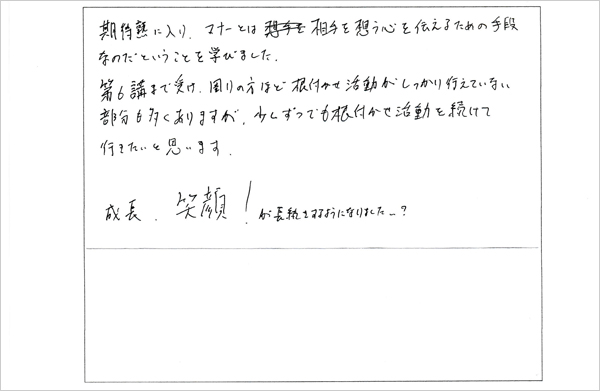 期待熱に入り、マナーとは 相手を想う心を伝えるための手段
なのだということを学びました。
第6講まで受け、周りの方ほど根付かせ活動がしっかり行えていない
部分も多くありますが、少しずつでも根付かせ活動を続けて
行きたいと思います。
成長、笑顔!が長続きするようになりました…?